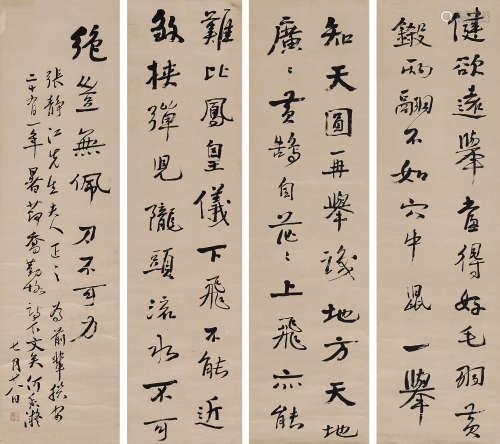 健欲遠舉當得好毛羽黃
鎩兩翮不如穴中鼠一舉
知天圓再舉識地方天地
廣〻黃鵠自茫〻上飛亦能
難比鳳皇儀下飛不能近
挾彈兒隴頭流水不可
絕豈無佩刀不可力
張靜江先生夫人正之為前輩
二十有一年暑節何香凝
七月十八日